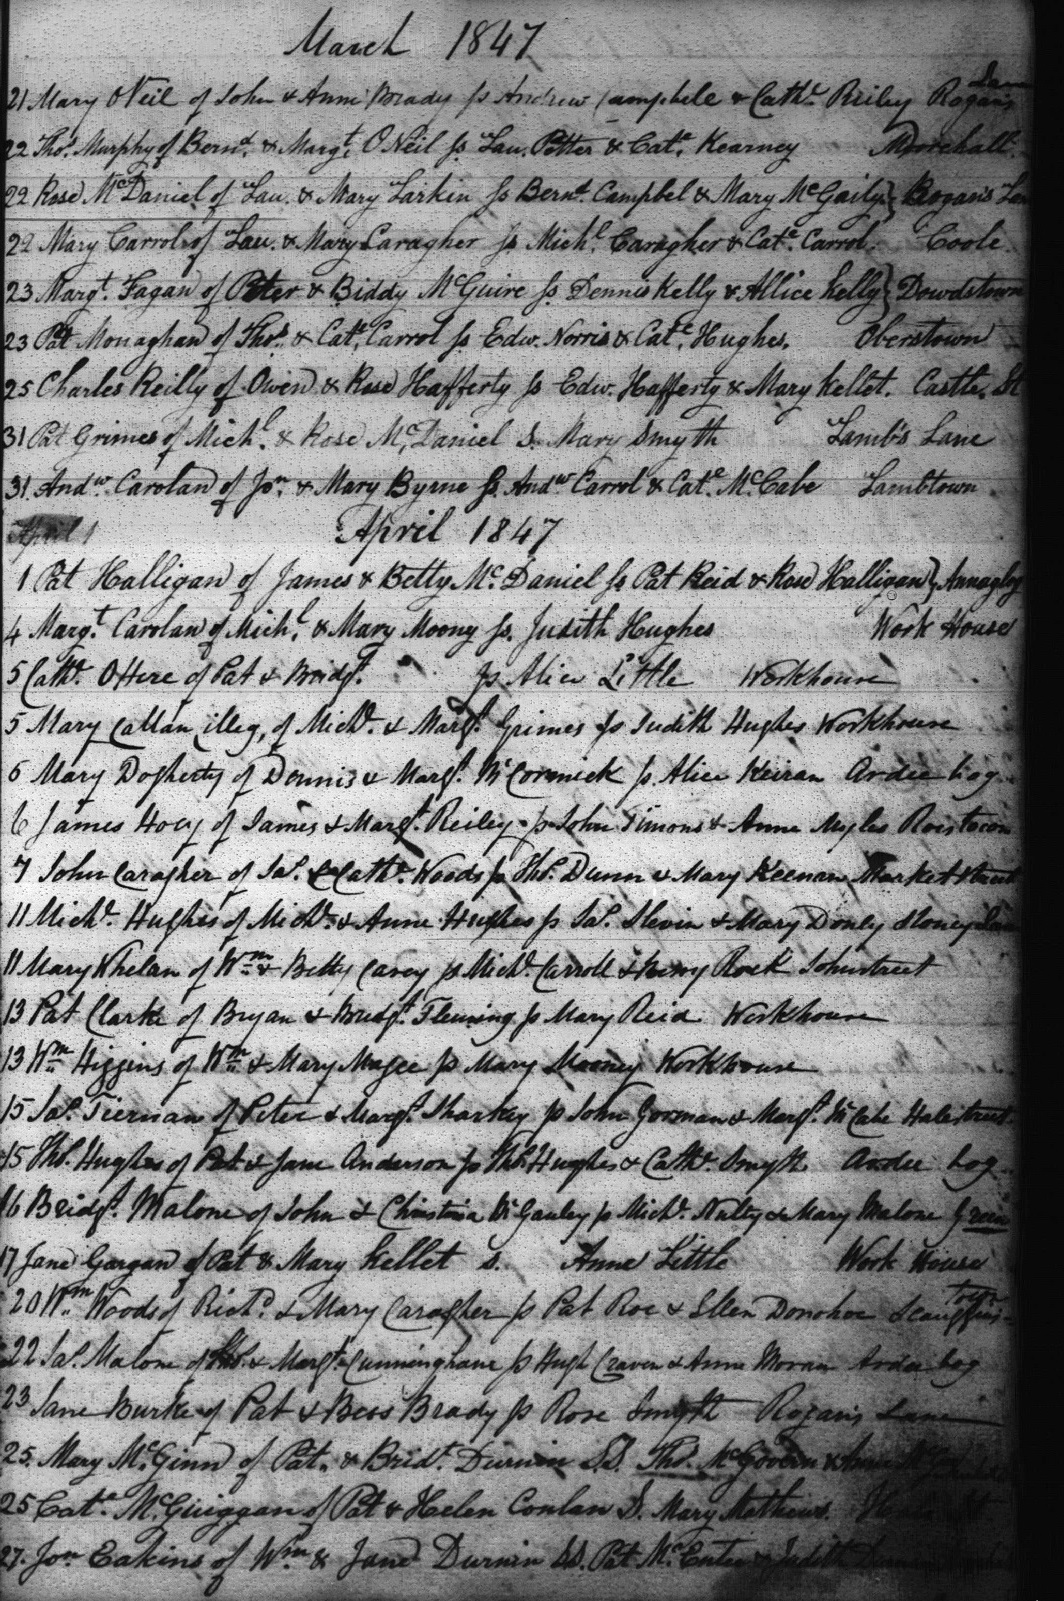 March 1847
21 Mary O Neil of John & Anne Brady ss Andrew Campbele & Cathe. Reiley Rogan's Lane
22 Thos. Murphy of Bernd. & Margt. O Neil ss Lau. Petter & Cate. Kearney Moorehall
22 Rose McDaniel of Lau. & Mary Larkin ss Bernd. Campbel & Mary McGaily } Rogan's Lane
22 Mary Carrol of Lau. & Mary Caragher ss Michl. Caragher & Cate. Carrol. Coole
23 Margt. Fagan of Peter & Biddy McGuire ss Dennis Kelly & Allice Kelly } Dowdstown
23 Pat Monaghan of Thos. & Cate. Carrol ss Edw. Norris & Cate. Hughes. Oberstown
25 Charles Reilly of Owen & Rose Hafferty ss Edw. Hafferty & Mary Kellet. Castle St
31 Pat Grimes of Michl. & Rose McDaniel S. Mary Smyth Lamb's Lane
31 Andw. Carolan of Jon. & Mary Byrne ss. Andw. Carrol & Cate. McCabe Lambtown
April 1
April 1847
1 Pat Halligan of James & Betty McDaniel ss Pat Reid & Rose Halligan }
4 Margt. Carolan of Michl. & Mary Moony ss. Judith Hughes Work House
5 Cathe. O Here of Pat & Bridgt. ss Alice Little Workhouse
5 Mary Callan illeg. of Michl. & Margt. Grimes ss Judith Hughes Workhouse
6 Mary Dogherty of Dennis & Margt. McCormick ss. Alice Keiran Ardee bog
6 James Hoey of James & Margt. Reiley ss John Timons & Anne Myles Roestown
7 John Caragher of Jas. & Cathe. Woods ss Thos. Dunn & Mary Keenan Market street
11 Michl. Hughes of Michl. & Anne Hughes ss Jas. Slevin & Mary Donly Stoney Lane
11 Mary Whelan of Wm. & Betty Carey ss Michl. Carroll & Rock Johnstreet
13 Pat Clarke of Bryan & Bridgt. Fleming ss Mary Reid Workhouse
13 Wm. Higgins of Wm. & Mary Magee ss Mary Mooney Workhouse
15 Jas. Tiernan of Peter & Margt. Sharkey ss John Gorman & Margt. McCabe Halestreet
15 Thos. Hughes of Pat & Jane Anderson ss Thos. Hughes & Cathe. Smyth Ardee bog
16 Bridgt. Malone of John & Christina McGauley ss Michl. Nulty & Mary Malone Green
17 Jane Gargan of Pat & Mary Kellet s. Anne Little Work House
20 Wm. Woods of Richd. & Mary Caragher ss Pat Roe & Ellen Donohoe
22 Jas. Malone of Thos. & Margt. Cunninghane ss Hugh Craven & Anne Moran Ardee bog
23 Jane Burke of Pat & Bess Brady ss Rose Smyth Rogan's Lane
25. Mary McGinn of Pat. & Bridt. Durnin S.S. Thos. McGovern &
25 Cate. McGuiggan of Pat & Helen Conlan S. Mary Mathews.
27. Jon Eakins of Wm. & Jane Durnin SS. Pat McEntee & Judith